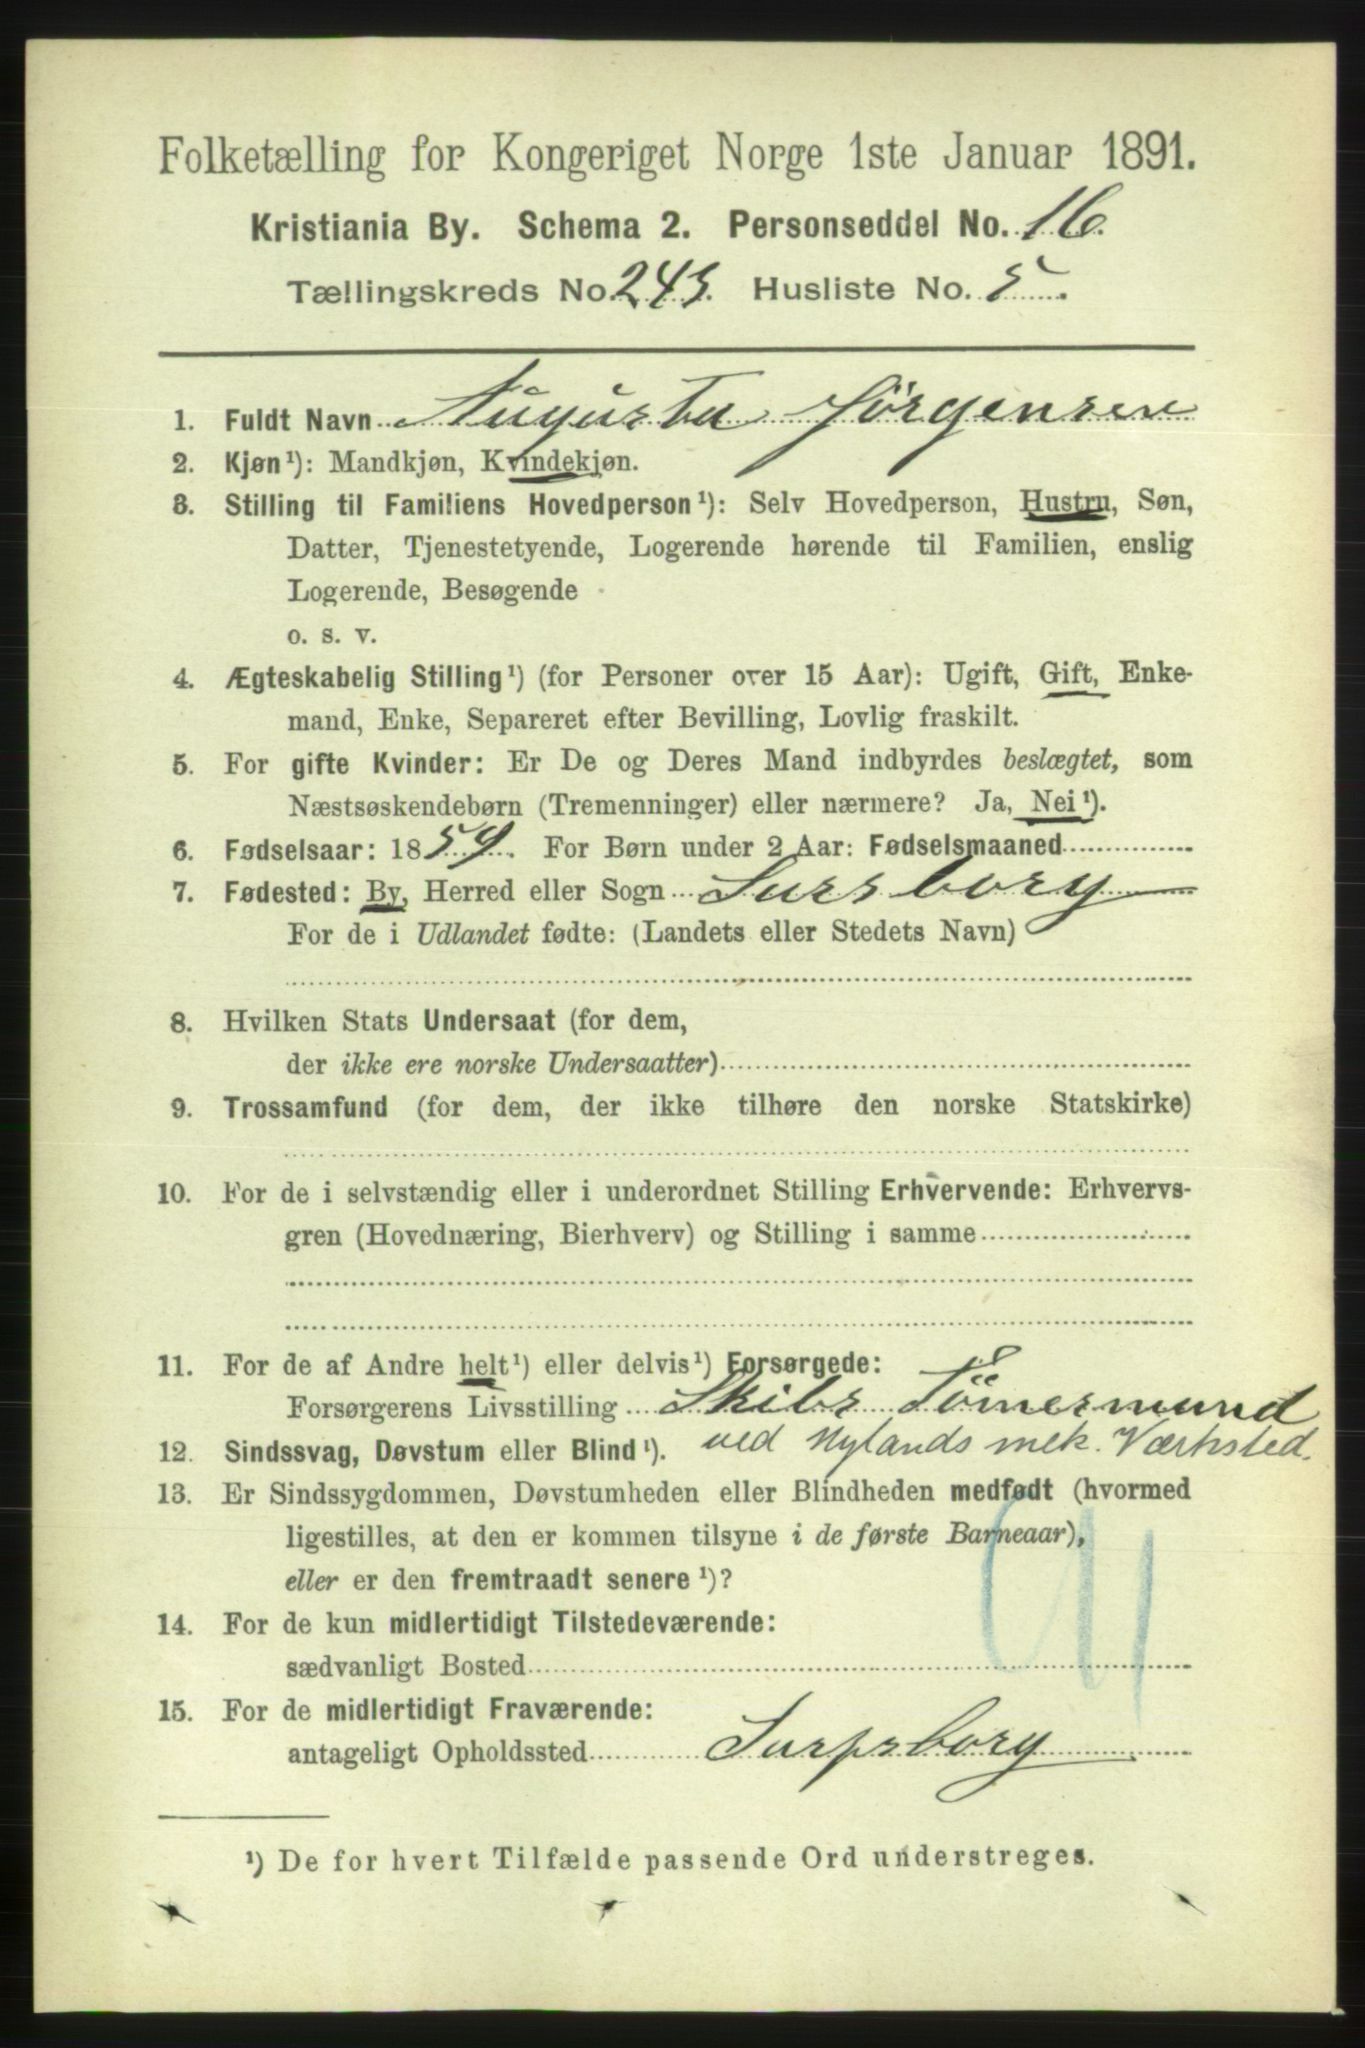 Folketælling for Kongeriget Norge 1ste Januar 1891.
Kristiania By. Schema 2. Personseddel No. 16.
Tællingskreds No. 243. Husliste No. 5.
1. Fuldt Navn Augusta Jörgensen
2. Kjøn¹): Mandkjøn, Kvindekjøn.
3. Stilling til Familiens Hovedperson¹): Selv Hovedperson, Hustru, Søn,
Datter, Tjenestetyende, Logerende hørende til Familien, enslig
Logerende, Besøgende
o. s. v.
4. Ægteskabelig Stilling¹) (for Personer over 15 Aar): Ugift, Gift, Enke-
mand, Enke, Separeret efter Bevilling, Lovlig fraskilt.
5. For gifte Kvinder: Er De og Deres Mand indbyrdes beslægtet, som
Næstsøskendebørn (Tremenninger) eller nærmere? Ja, Nei¹).
6. Fødselsaar: 1859. For Børn under 2 Aar: Fødselsmaaned
7. Fødested: By, Herred eller Sogn Sarsborg
For de i Udlandet fødte: (Landets eller Stedets Navn)
8. Hvilken Stats Undersaat (for dem,
der ikke ere norske Undersaatter)
9. Trossamfund (for dem, der ikke tilhøre den norske Statskirke)
10. For de i selvstændig eller i underordnet Stilling Erhvervende: Erhvervs-
gren (Hovednæring, Bierhverv) og Stilling i samme
11. For de af Andre helt¹) eller delvis¹) Forsørgede:
Forsørgerens Livsstilling Skibs Tömermand
12. Sindssvag, Døvstum eller Blind¹). ved Nylands mek. Værksted.
13. Er Sindssygdommen, Døvstumheden eller Blindheden medfødt (hvormed
ligestilles, at den er kommen tilsyne i de første Barneaar),
eller er den fremtraadt senere¹)?
14. For de kun midlertidigt Tilstedeværende:
sædvanligt Bosted
15. For de midlertidigt Fraværende:
antageligt Opholdssted Sarpsborg
¹) De for hvert Tilfælde passende Ord understreges.